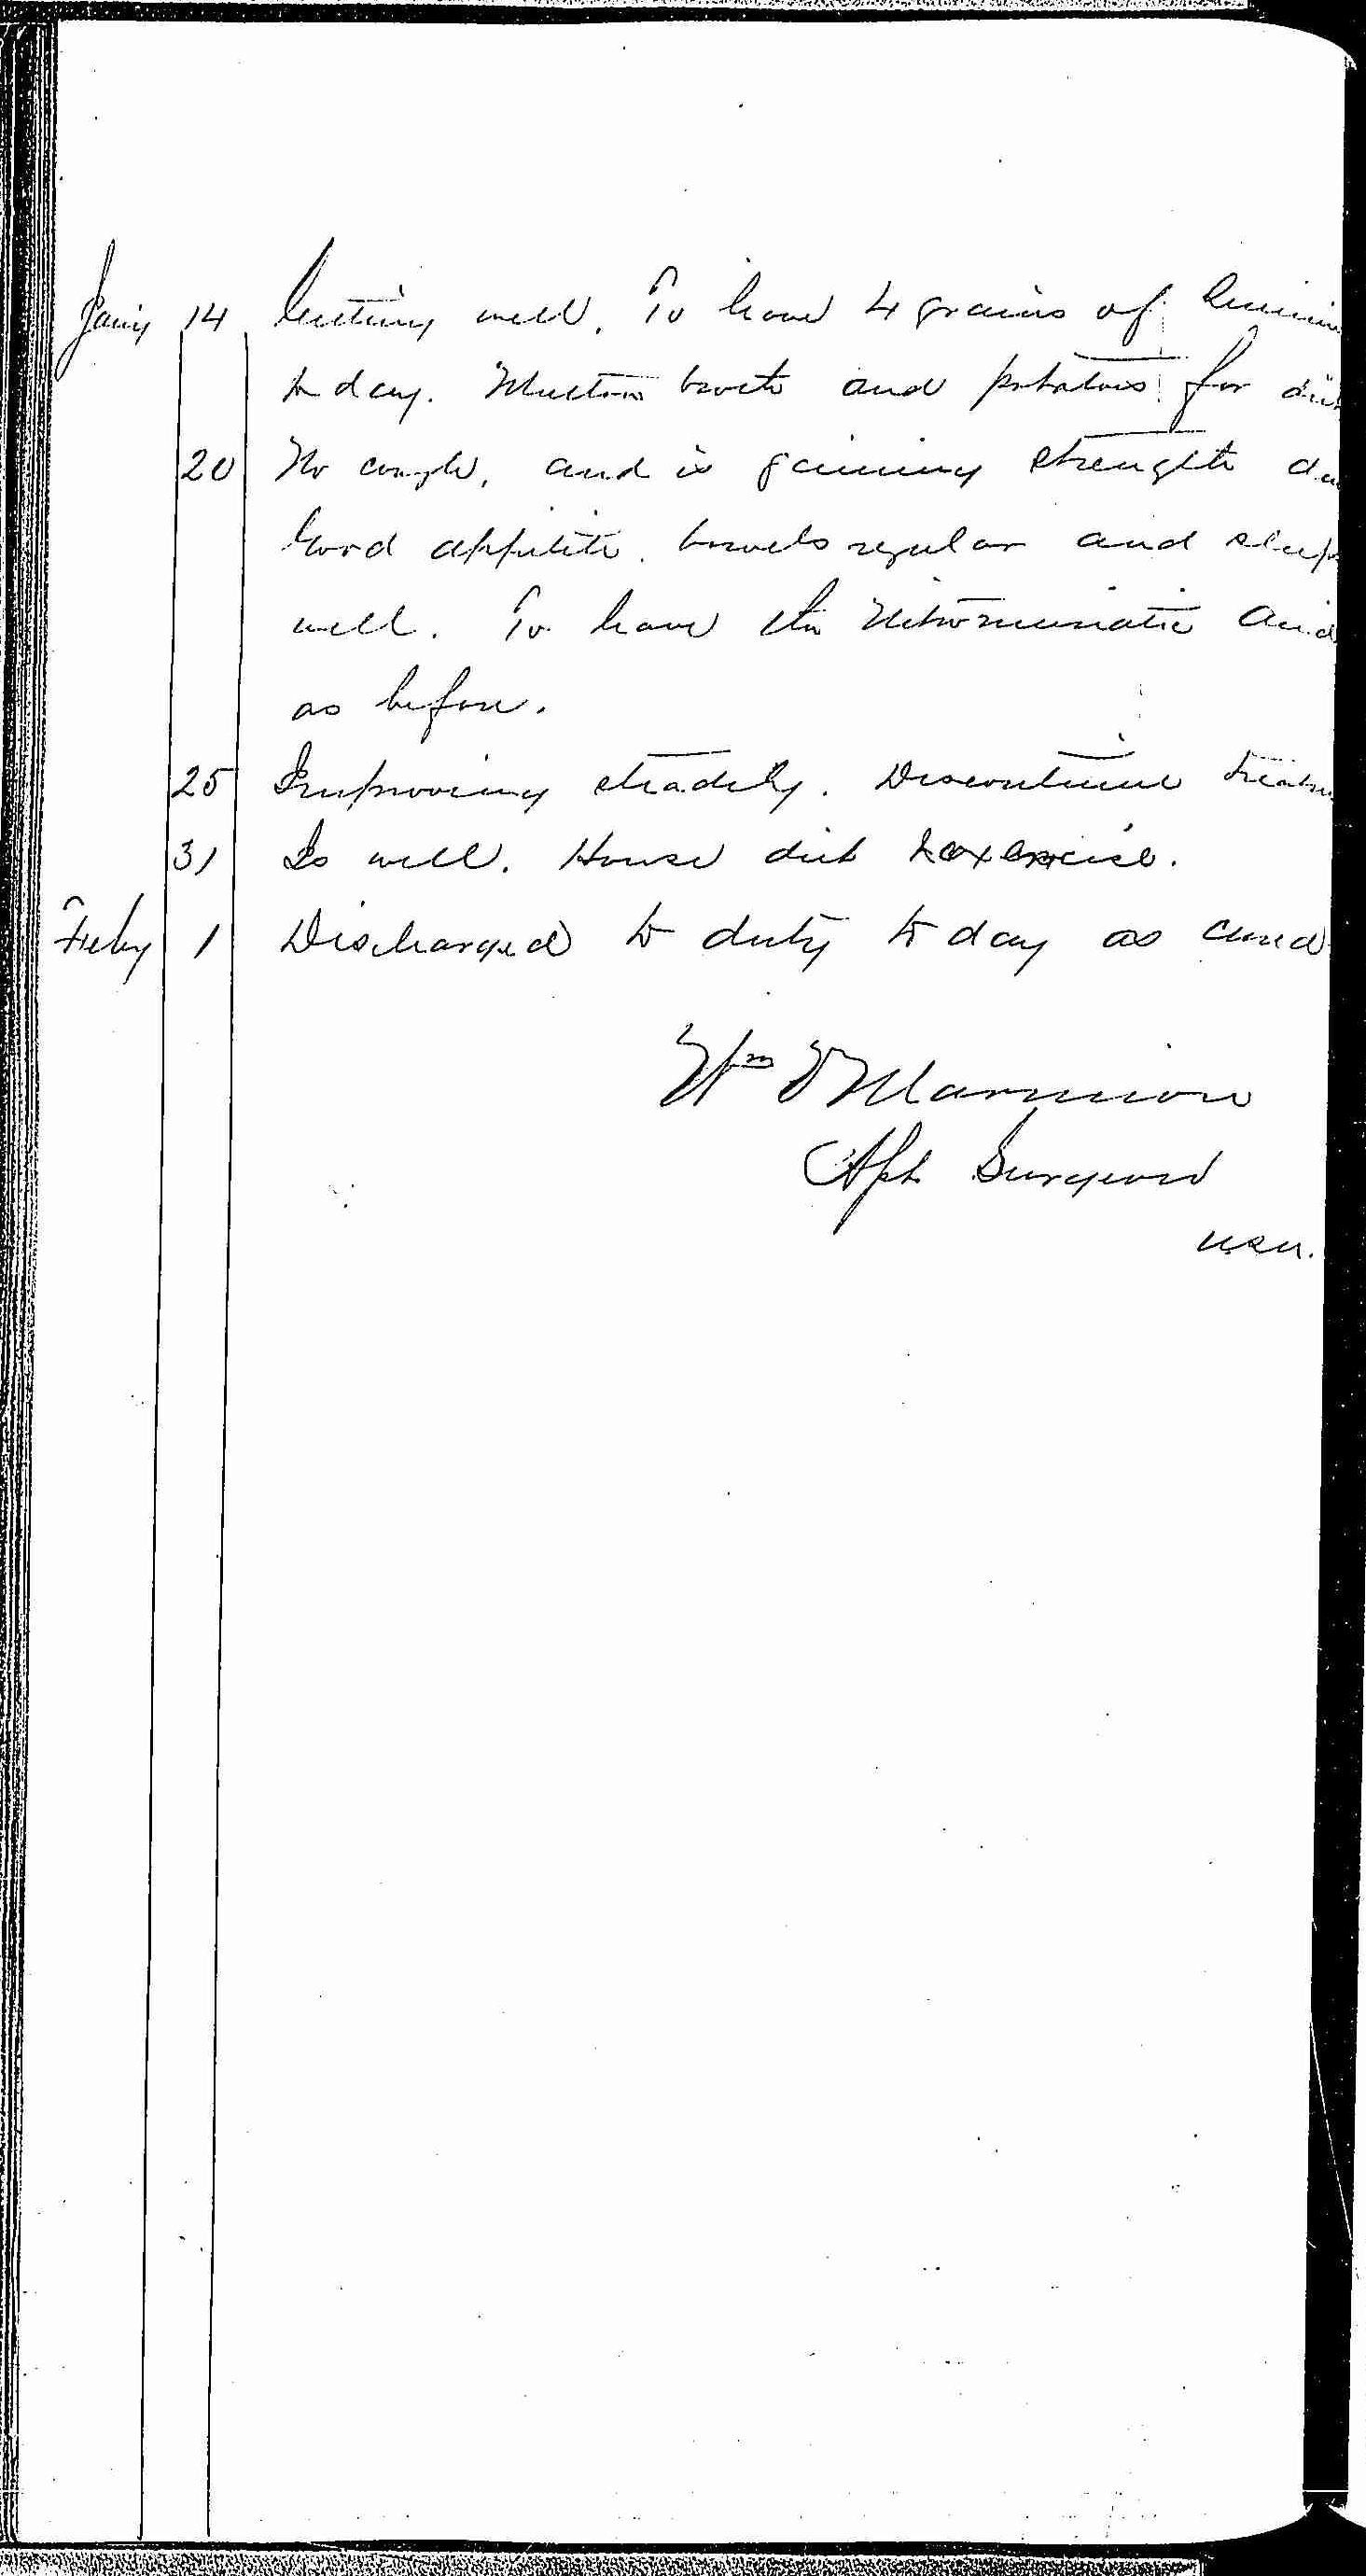 Jany 14 Getting well. To have 4 grains of Quinin
to day. Mutton broth and potatoes for diet
20 No cough, and is gaining strength
Good appetite. bowels regular and sleeps
well. To have the Nitromuriatic Acid
as before.
25 Improving steadily. Discontinue treatm
31 Is well. House diet & exercise.
Feby 1 Discharged to duty to day as cured
Wm V Marmion
Asst Surgeon
USN.